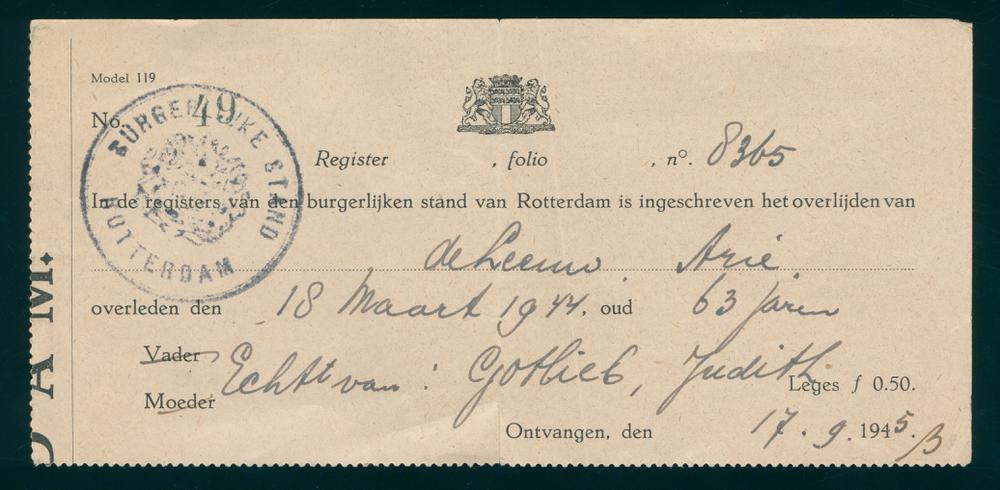 Model 119
No. 49
BURGERLIJKE STAND
ROTTERDAM
Register , folio , no. 8365
In de registers van den burgerlijken stand van Rotterdam is ingeschreven het overlijden van
de Leeuw. Arie
overleden den 18 Maart 1944. oud 63 jaren
Vader
Echtt van: Gotlieb, Judith
Moeder
Leges f 0.50.
Ontvangen, den 17.9.1945.
AM.